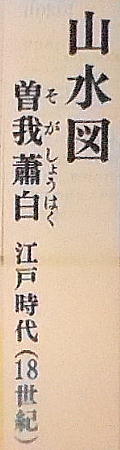 山水図
曽我蕭白 江戸時代(18世紀)
そがしょうはく